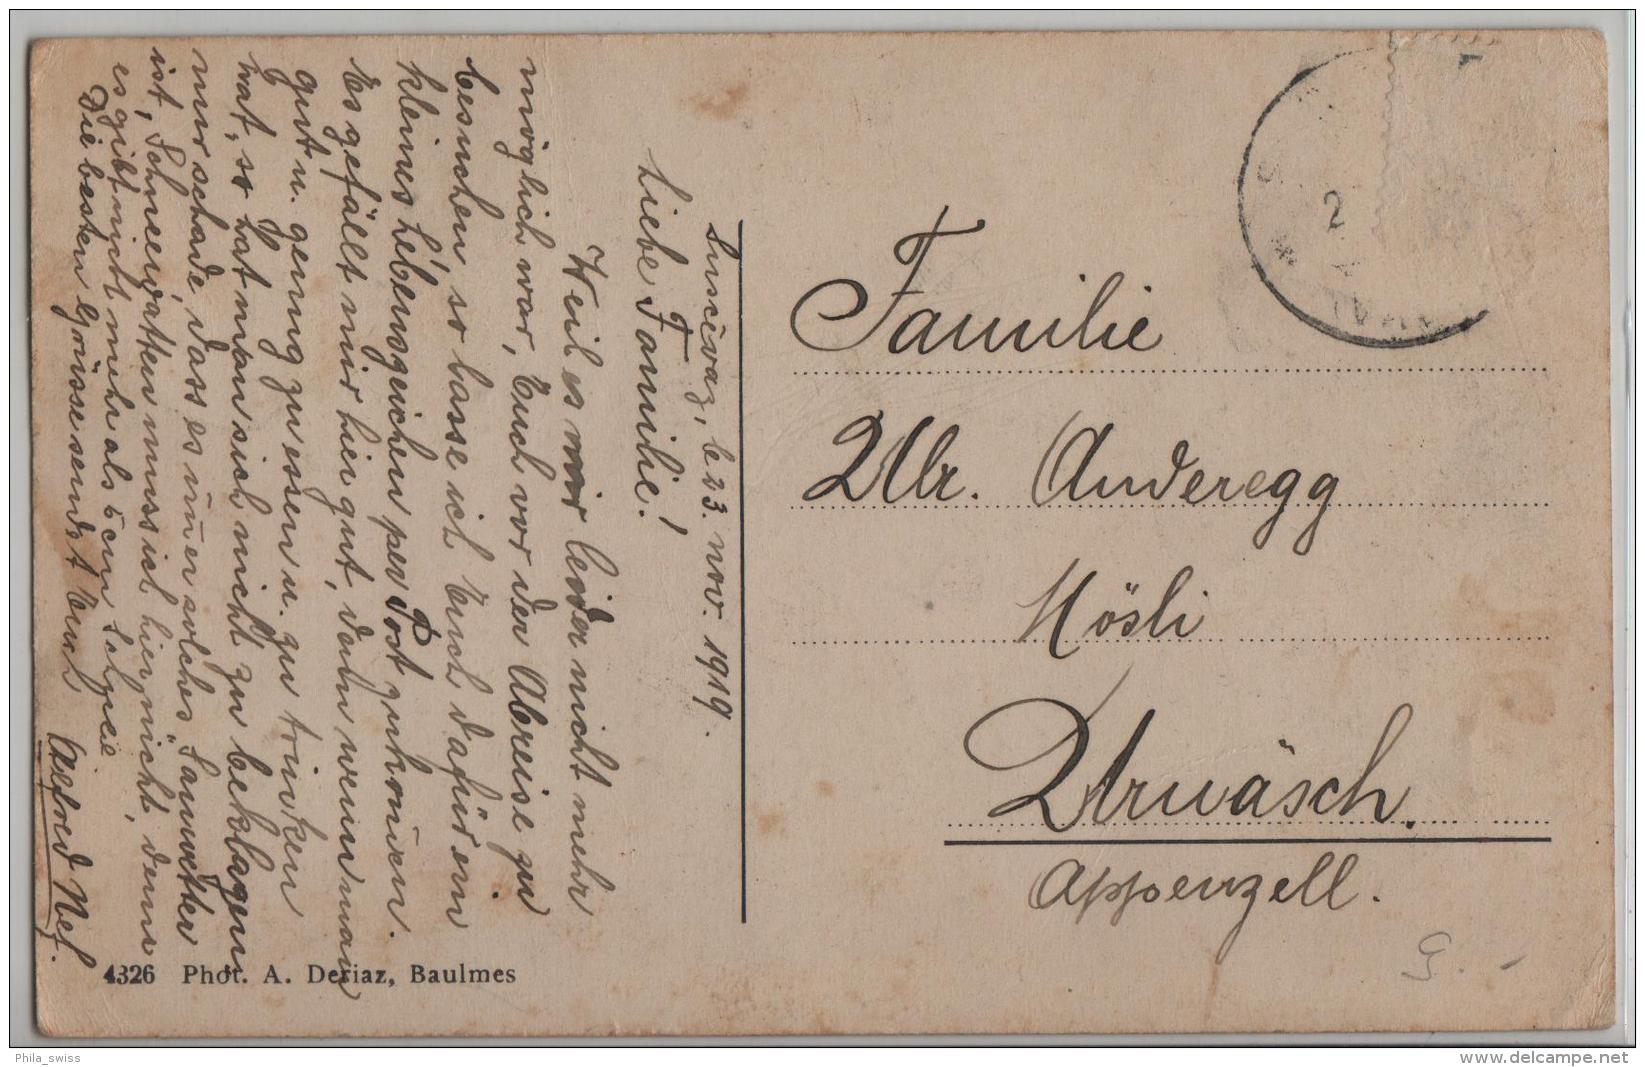 Suscévaz, le 23. nov. 1919.
Liebe Familie!
Weil es mir leider nicht mehr
möglich war, Euch vor der Abreise zu
besuchen, so lasse ich Euch dafür ein
kleines Lebenszeichen per Post zukom̄en.
Es gefällt mir hier gut, denn wenn man
gut u. genug zu essen u. zu trinken
hat, so hat man sich nicht zu beklagen
nur schade, dass es im̄er solches Sauwetter
ist, Schneewatten muss ich hier nicht, denn
es gibt nicht mehr als 5 cm Schnee
Die besten Grüsse sendet Euch
Alfred Nef.
Familie
Ulr. Anderegg
Mösli
Urnäsch.
Appenzell.
2
G. -
4326 Phot. A. Deriaz, Baulmes
Phila_swiss
www.delcampe.net